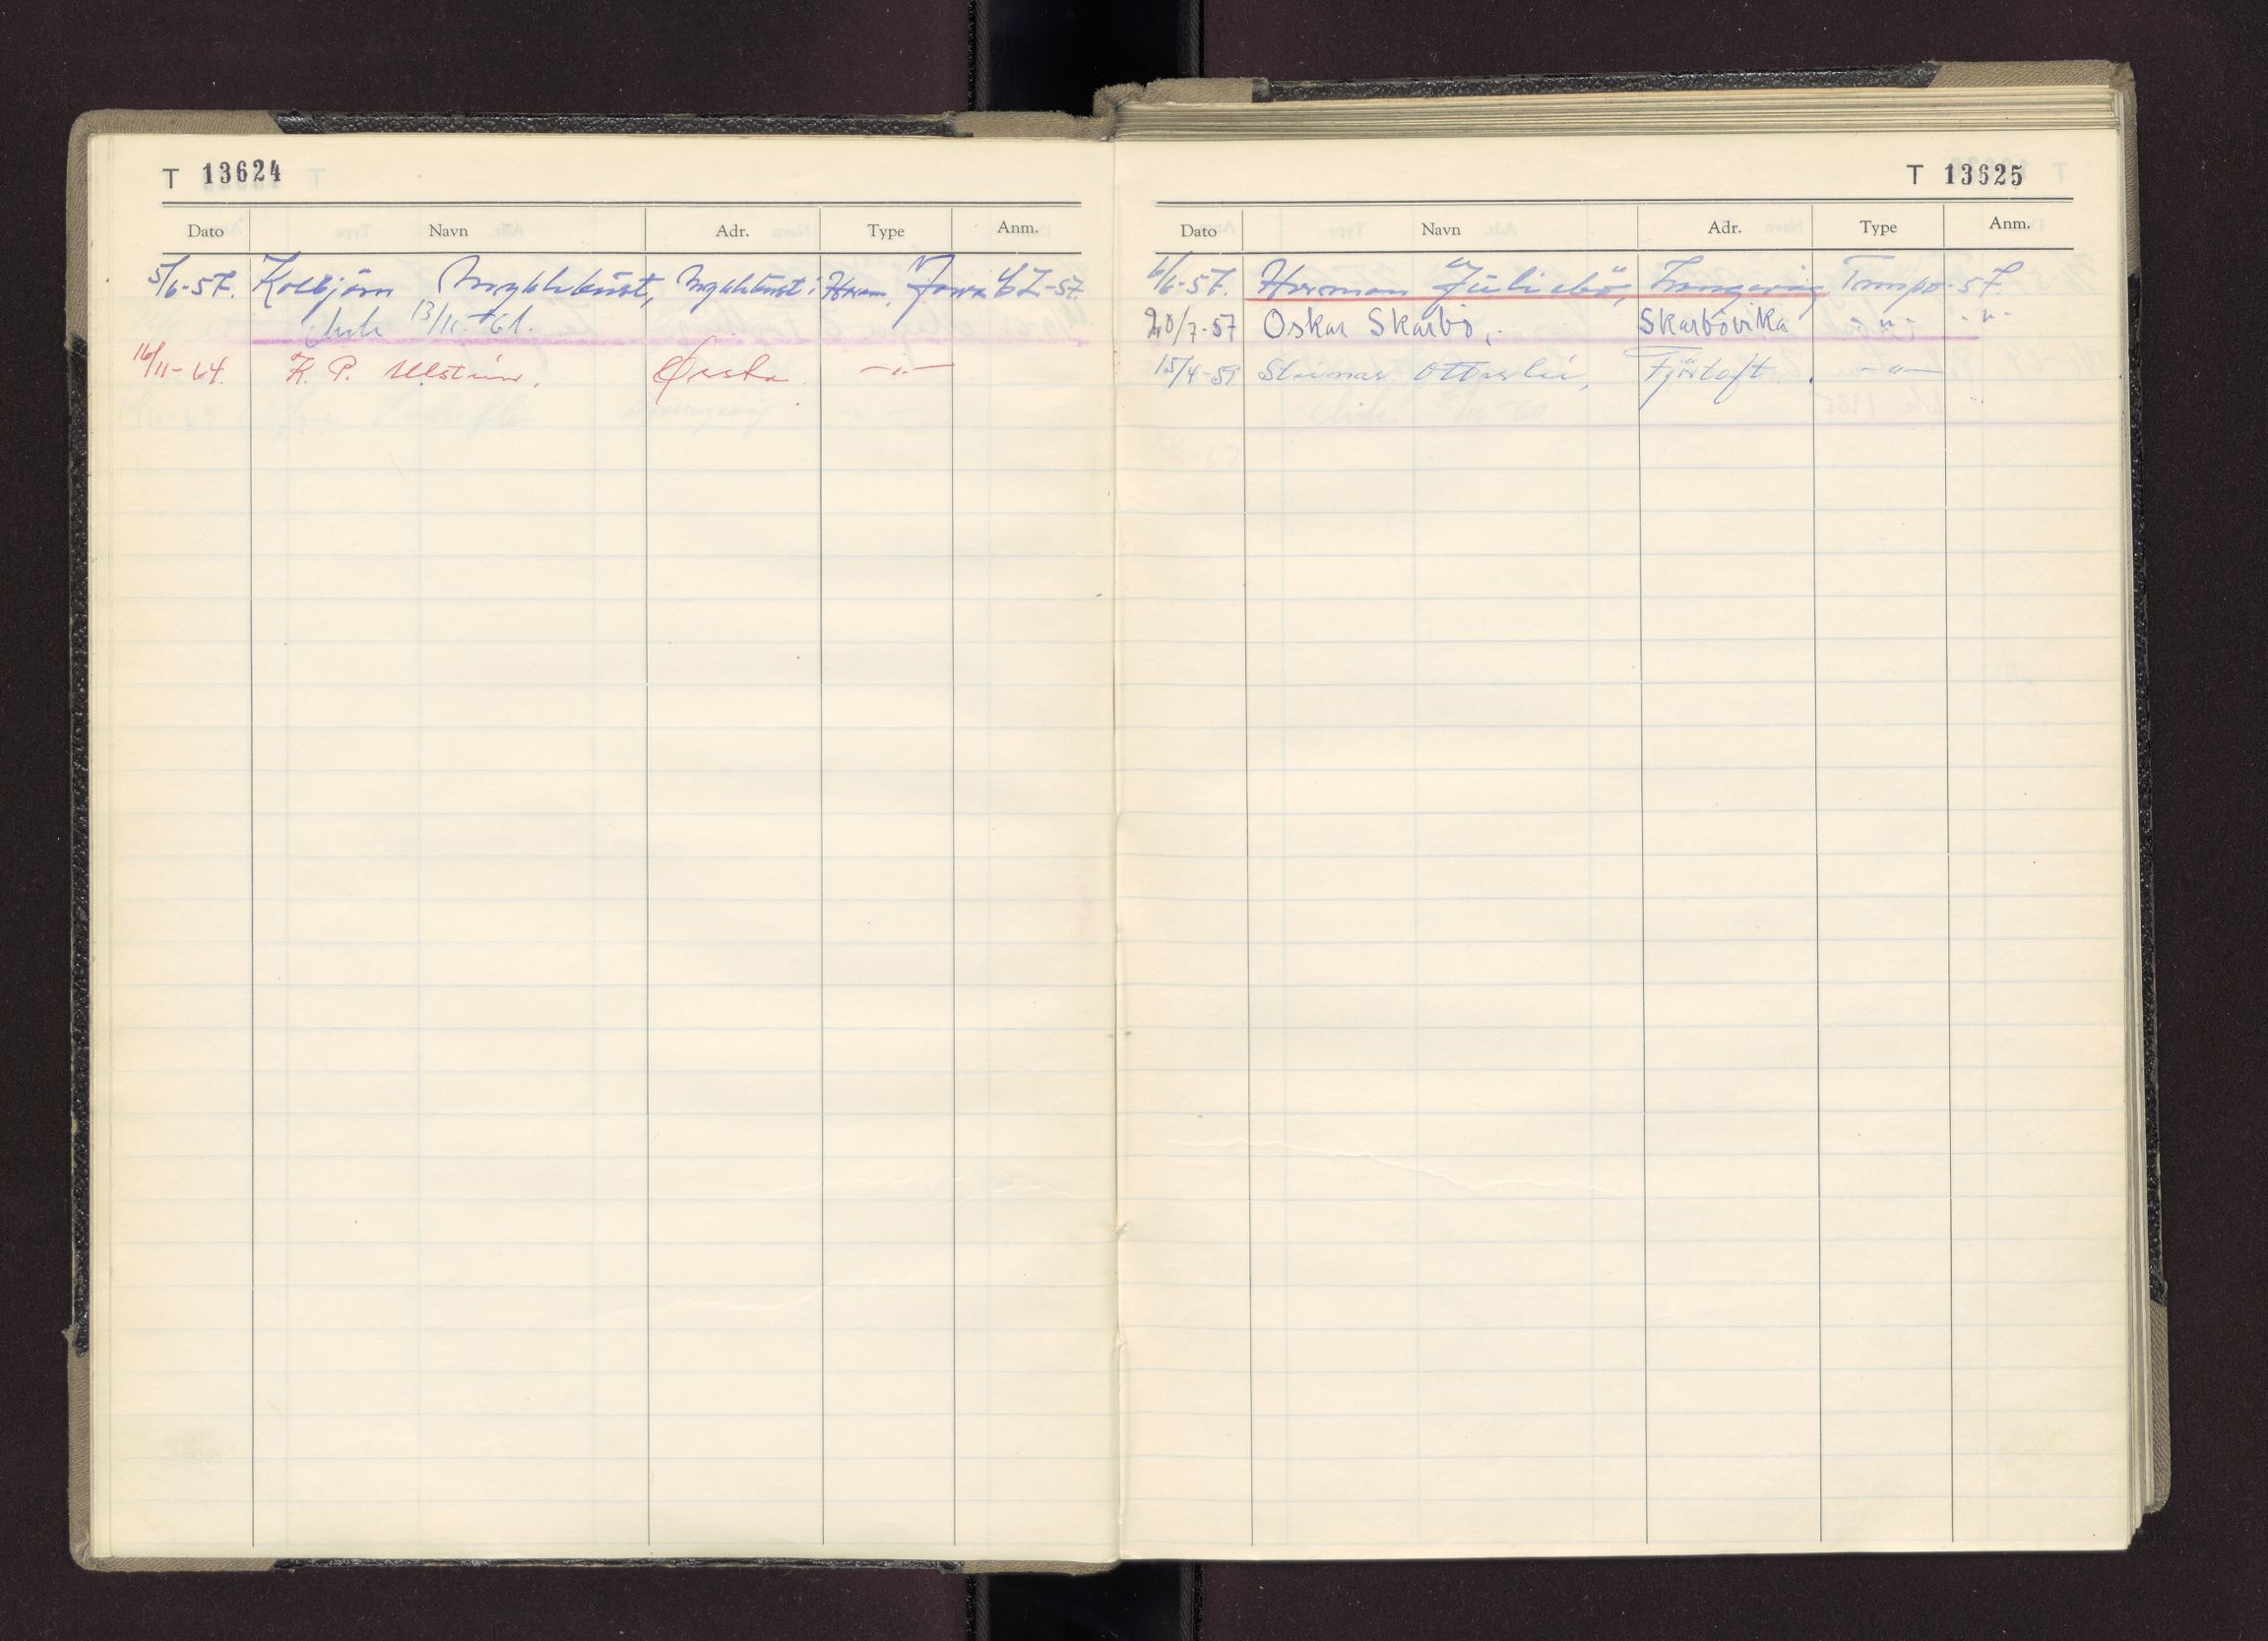 T 13624
Dato Navn Adr. Type Anm.
5/6-57. Kolbjörn Myklebust, Myklebust i Haram, Jawa CZ-57.
13/11-61.
16/11-64. K. P. Ulstein, Ørsta. -"-
T 13625
Dato Navn Adr. Type Anm.
6/6-57. Herman Juliebö, Langevåg Tempo-57.
20/7-57 Oskar Skarbö, Skarbövika -"- -"-
15/4-59 Steinar Otterlei, Fjörtoft. -"-